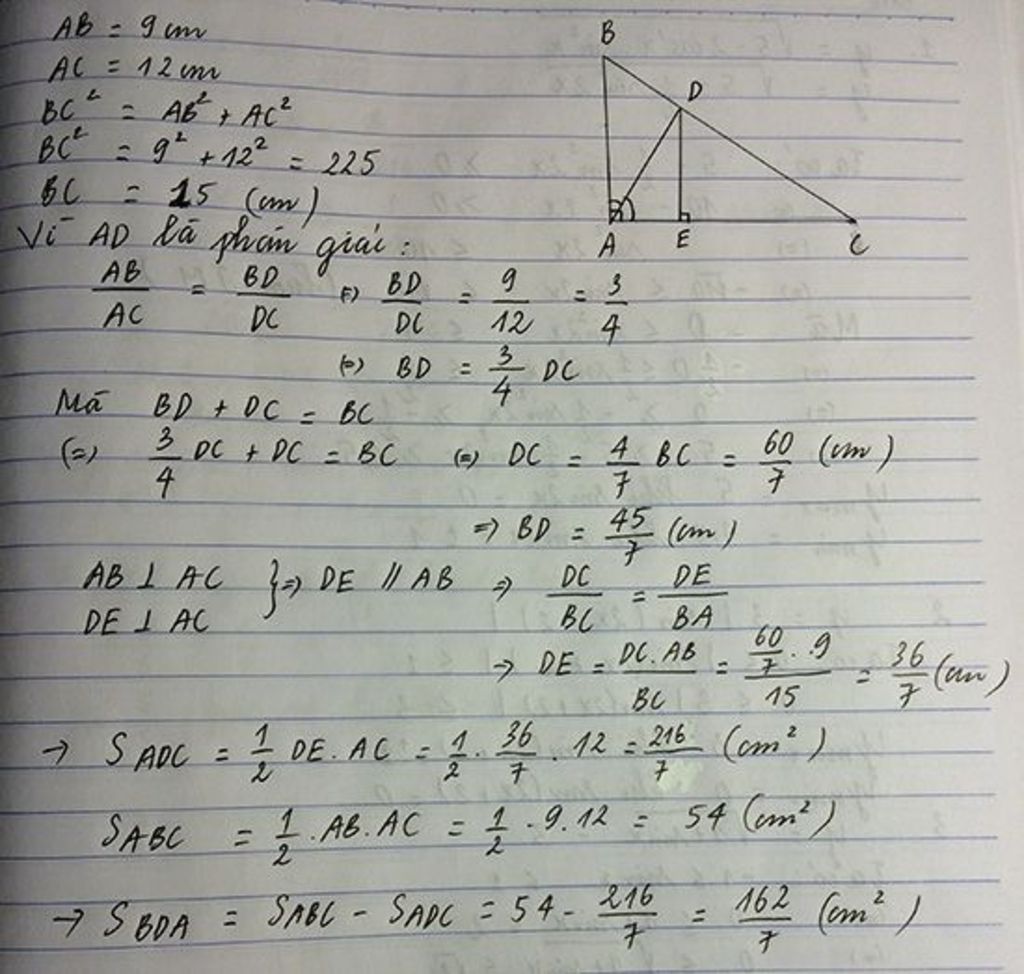 AB = 9 cm
AC = 12 cm
BC² = AB² + AC²
BC² = 9² + 12² = 225
BC = 15 (cm)
B
D
A
E
C
Vì AD là phân giác :
AB/AC = BD/DC (=) BD/DC = 9/12 = 3/4
(=) BD = 3/4 DC
Mà BD + DC = BC
(=) 3/4 DC + DC = BC (=) DC = 4/7 BC = 60/7 (cm)
=> BD = 45/7 (cm)
AB ⊥ AC
DE ⊥ AC } => DE // AB => DC/BC = DE/BA
→ DE = DC.AB/BC = (60/7 . 9)/15 = 36/7 (cm)
→ S ADC = 1/2 DE.AC = 1/2 . 36/7 . 12 = 216/7 (cm²)
S ABC = 1/2 . AB.AC = 1/2 . 9.12 = 54 (cm²)
→ S BDA = S ABC - S ADC = 54 - 216/7 = 162/7 (cm²)